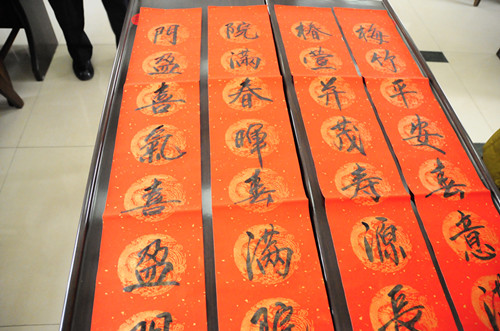 梅竹平安春意滿
椿萱并茂壽源長
院滿春暉春滿院
門盈喜氣喜盈門